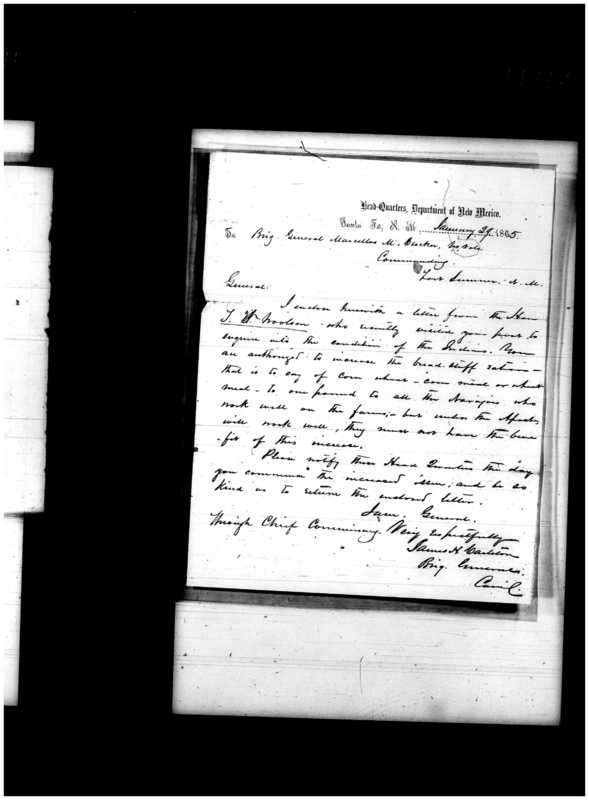 Head-Quarters, Department of New Mexico.
Santa Fe, N. M. January 29, 1865.
To Brig. General Marcellus M. Crocker, US Vols
Commanding
Fort Sumner. N. M.
General:
I enclose herewith a letter from the Hon
T. W. Woolson who recently visited your post to
enquire into the condition of the Indians. You
are authorized to increase the bread-stuff rations -
that is to say of corn wheat - corn meal or wheat
meal - to one pound to all the Navajoes who
work well on the farms; - but unless the Apaches
will work well, they must not have the bene
-fit of this increase.
Please notify these Head Quarters the day
you commence the increased issue; and be so
kind as to return the enclosed letter.
I am. General.
through Chief Commissary. Very respectfully
James H. Carleton
Brig. General
Com'g.